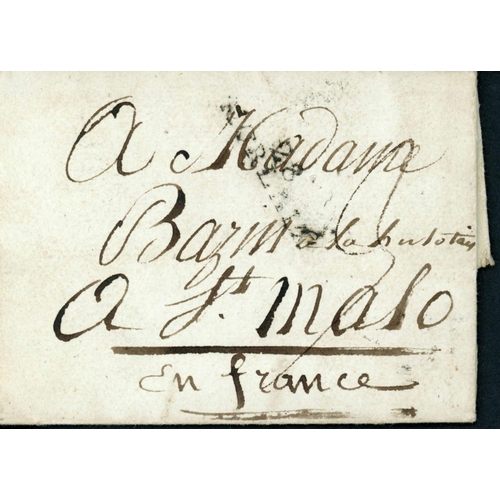 A Madame
Bazin à la hulotais
A St. malo
en france